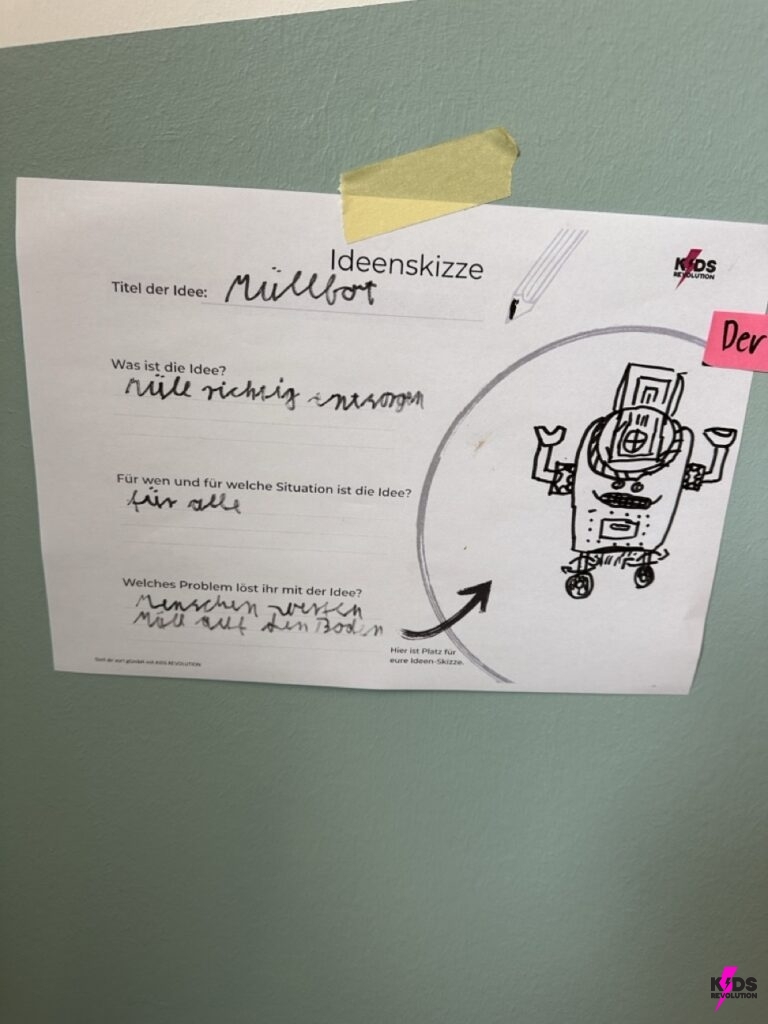 Ideenskizze
KIDS
REVOLUTION
Titel der Idee: Müllbot
Der
Was ist die Idee?
Müll richtig entsorgen
Für wen und für welche Situation ist die Idee?
für alle
Welches Problem löst ihr mit der Idee?
Menschen werfen
Müll auf den Boden
Hier ist Platz für
eure Ideen-Skizze.
KIDS REVOLUTION
KIDS
REVOLUTION